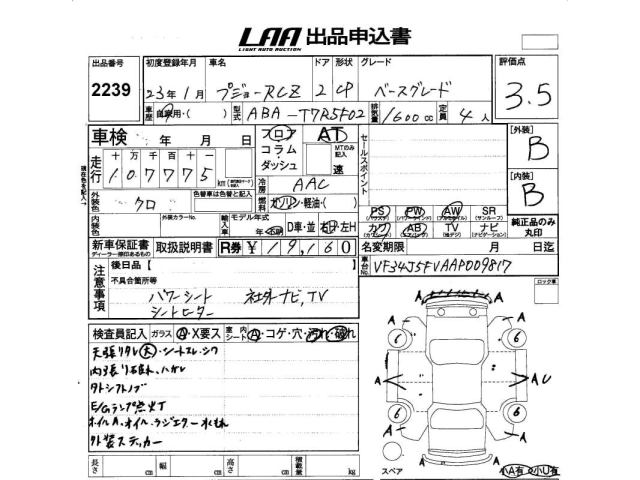 LAA 出品申込書
LIGHT AUTO AUCTION
出品番号 初度登録年月 車名 ドア 形状 グレード 評価点
2239 23年1月 プジョーRCZ 2 CP ベースグレード 3.5
車歴 自家用・( ) 型式 ABA-T7R5F02 排気量 1600cc 定員 4人
車検 年 月 日 フロア コラム・ダッシュ AT MTのみ記入 速 セールスポイント
[外装] B
走行 十 万 千 百 十 一
107775 km
冷房 AAC
[内装] B
外装色 クロ 色替車は色替と記入 燃料 ガソリン・軽油・( )
PS PW AW SR
内装色 外装カラーNo. 輸入車 モデル年式 D車・並 右H・左H
カワ AB TV ナビ
純正品のみ丸印
新車保証書 取扱説明書 R券 ¥19,160 名変期限 月 日迄
ディーラー捺印あるもの
注意事項 後日品【 車台No. VF34J5FVAAP009817
不具合箇所等 ロック車
パワーシート 社外ナビ、TV
シートヒーター
検査員記入 ガラス A・X要ス 室内シート A・コゲ・穴・汚れ・破れ
天張リタレ(大)・シートスレ・シワ
内張リ石丸、ハガレ
クトシフトノブ
E/Gランプ点灯
ホイルA、オイル、ラジエター水もれ
外装ステッカー
長さ cm 幅 cm 高さ cm 積載量 kg
A A A
A 6 6 A
A A U
6 6
A A
スペア 小A有 小U有